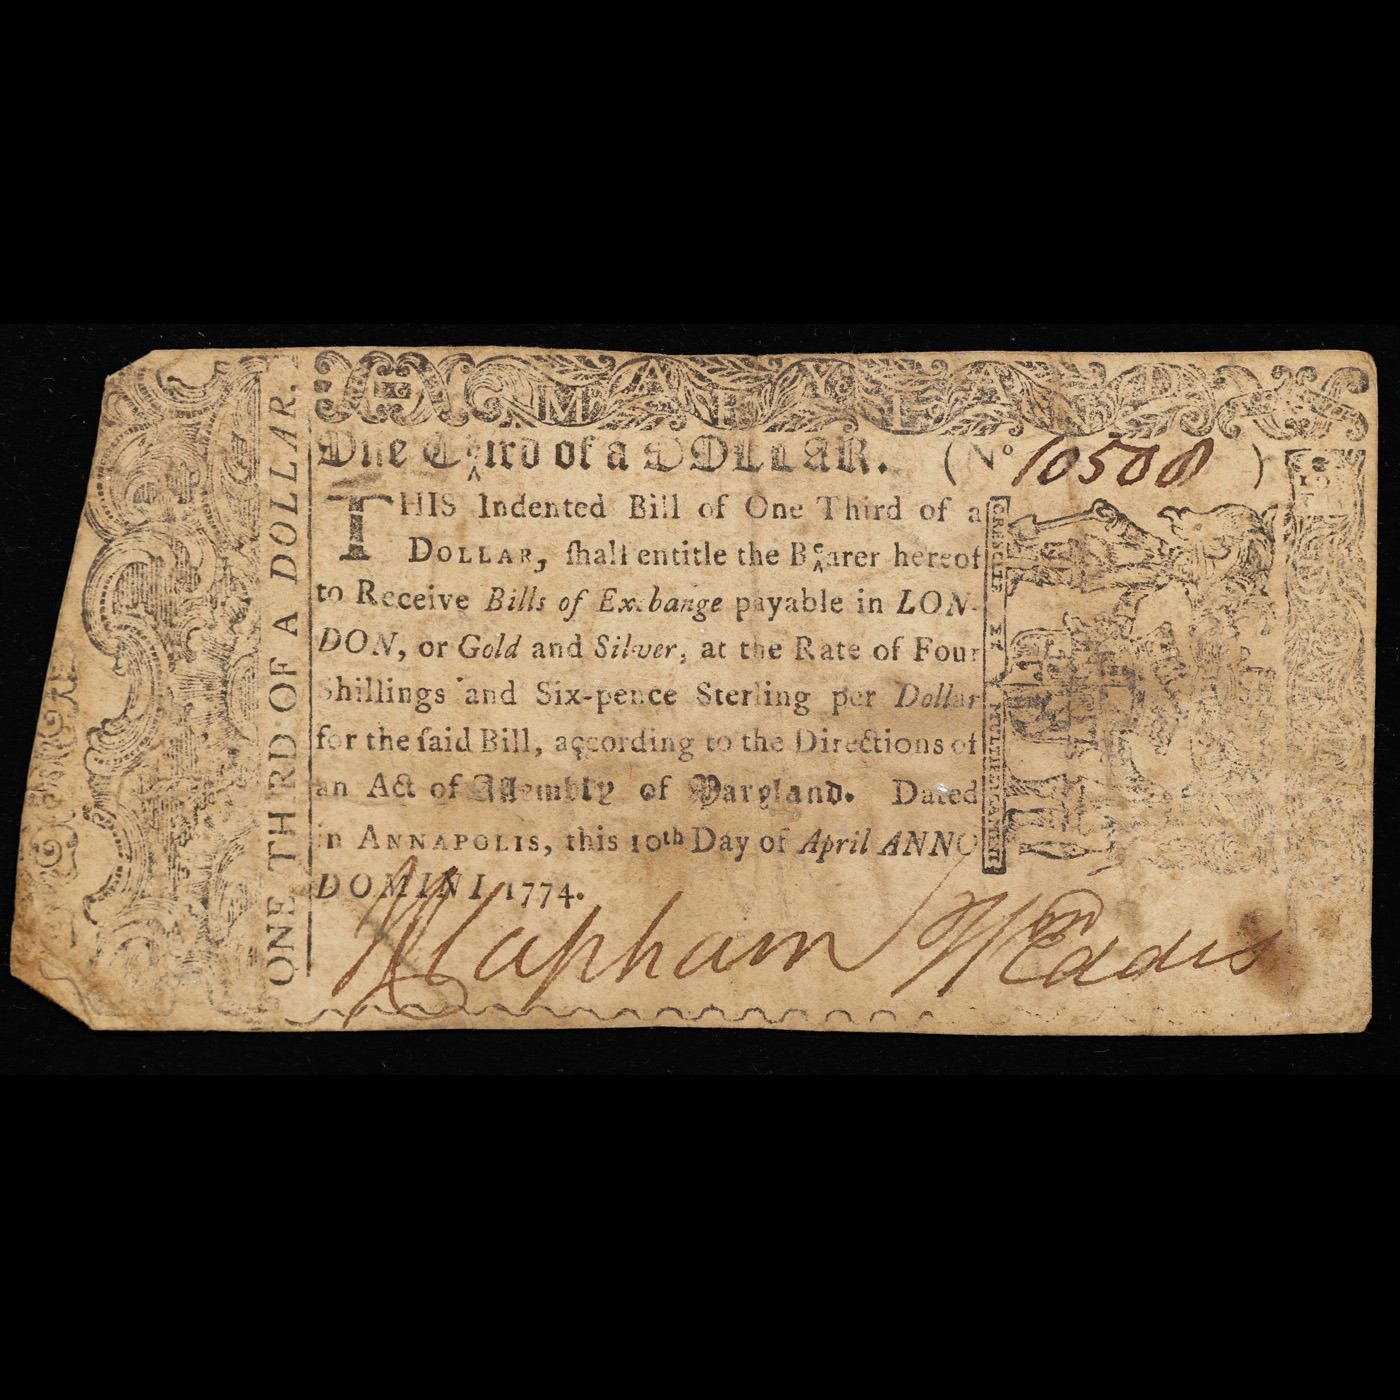 MARYLAND
One Third of a DOLLAR. (No 10508)
THIS Indented Bill of One Third of a
DOLLAR, ſhall entitle the Bearer hereof
to Receive Bills of Exchange payable in LON-
DON, or Gold and Silver, at the Rate of Four
Shillings and Six-pence Sterling per Dollar
for the ſaid Bill, according to the Directions of
an Act of Aſſembly of Maryland. Dated
in ANNAPOLIS, this 10th Day of April ANNO
DOMINI 1774.
Clapham Wm Eddis
ONE THIRD OF A DOLLAR.
CRESCITE ET MULTIPLICAMINI